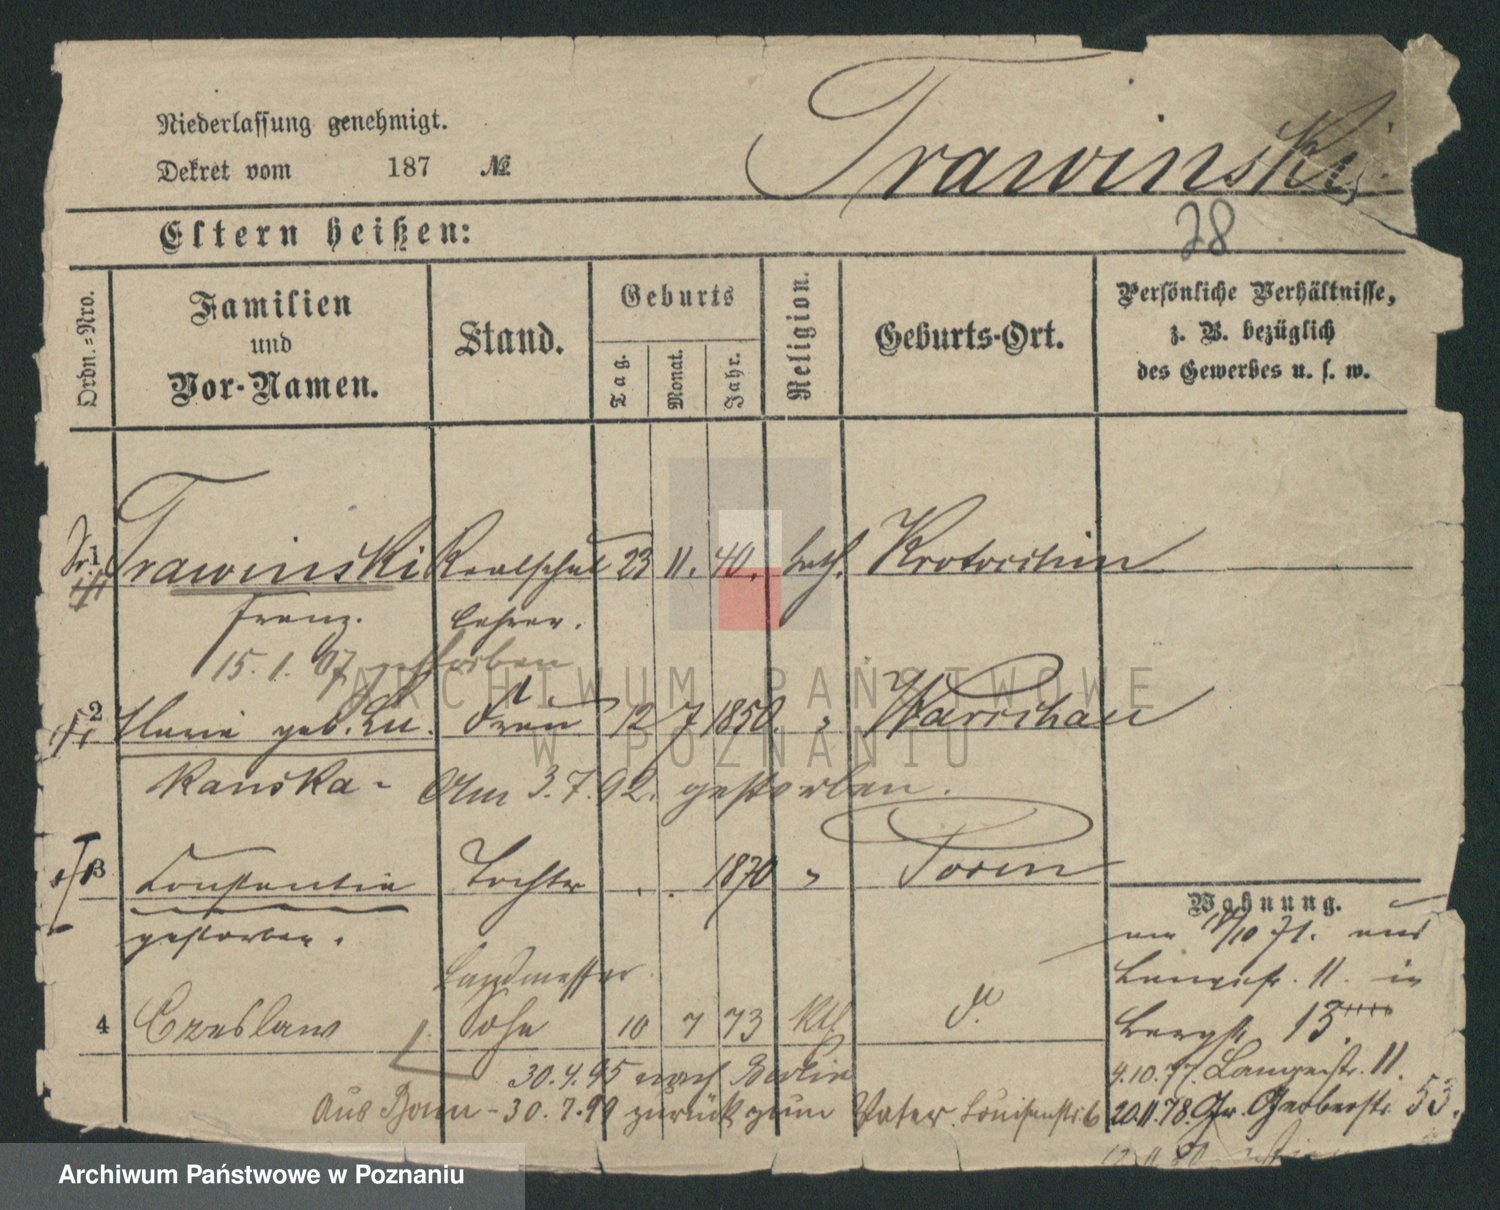 Niederlassung genehmigt.
Dekret vom 187 №
Trawinski
28
Eltern heißen:
Ordn.=Nro.
Familien und Vor-Namen.
Stand.
Geburts
Tag. Monat. Jahr.
Religion.
Geburts-Ort.
Persönliche Verhältnisse, z. B. bezüglich des Gewerbes u. s. w.
1 Trawinski Realschul 23 11. 40. kath. Krotoschin
Franz. Lehrer.
15. 1. 07 gestorben
2 Marie geb. Lu. Frau 12 7 1850. " Warschau
kanska - Am 3.7.92. gestorben.
3 Constantia Tochter . . 1870 " Posen
gestorben.
Landmesser
4 Czeslaw Sohn 10 7 73 Kth d.
30.4.95 nach Berlin
Aus Bonn - 30.7.99 zurück zum Vater. Louisenstr. 6
Wohnung.
am /10 71. aus
Langestr. 11. in
Bergstr 13.
4.10.77. Langestr. 11.
20.11.78. Gr. Gerberstr. 53.
ARCHIWUM PAŃSTWOWE
W POZNANIU
Archiwum Państwowe w Poznaniu